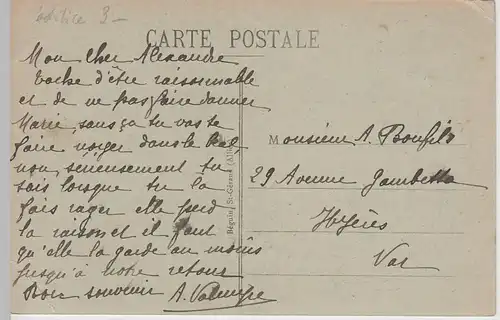 3 –
CARTE POSTALE
Mon cher Alexandre
tache d'être raisonnable
et de ne pas faire damner
Marie, sans ça tu vas te
faire nèger dans le Bal,
non sérieusement tu
sais lorsque tu la
fais rager elle perd
la raison et il faut
qu'elle la garde au moins
jusqu'à notre retour
Bon souvenir A.
Bégule, St-Géraud (Allier)
Monsieur A. Bonfils
29 Avenue Gambetta
Hyères
Var